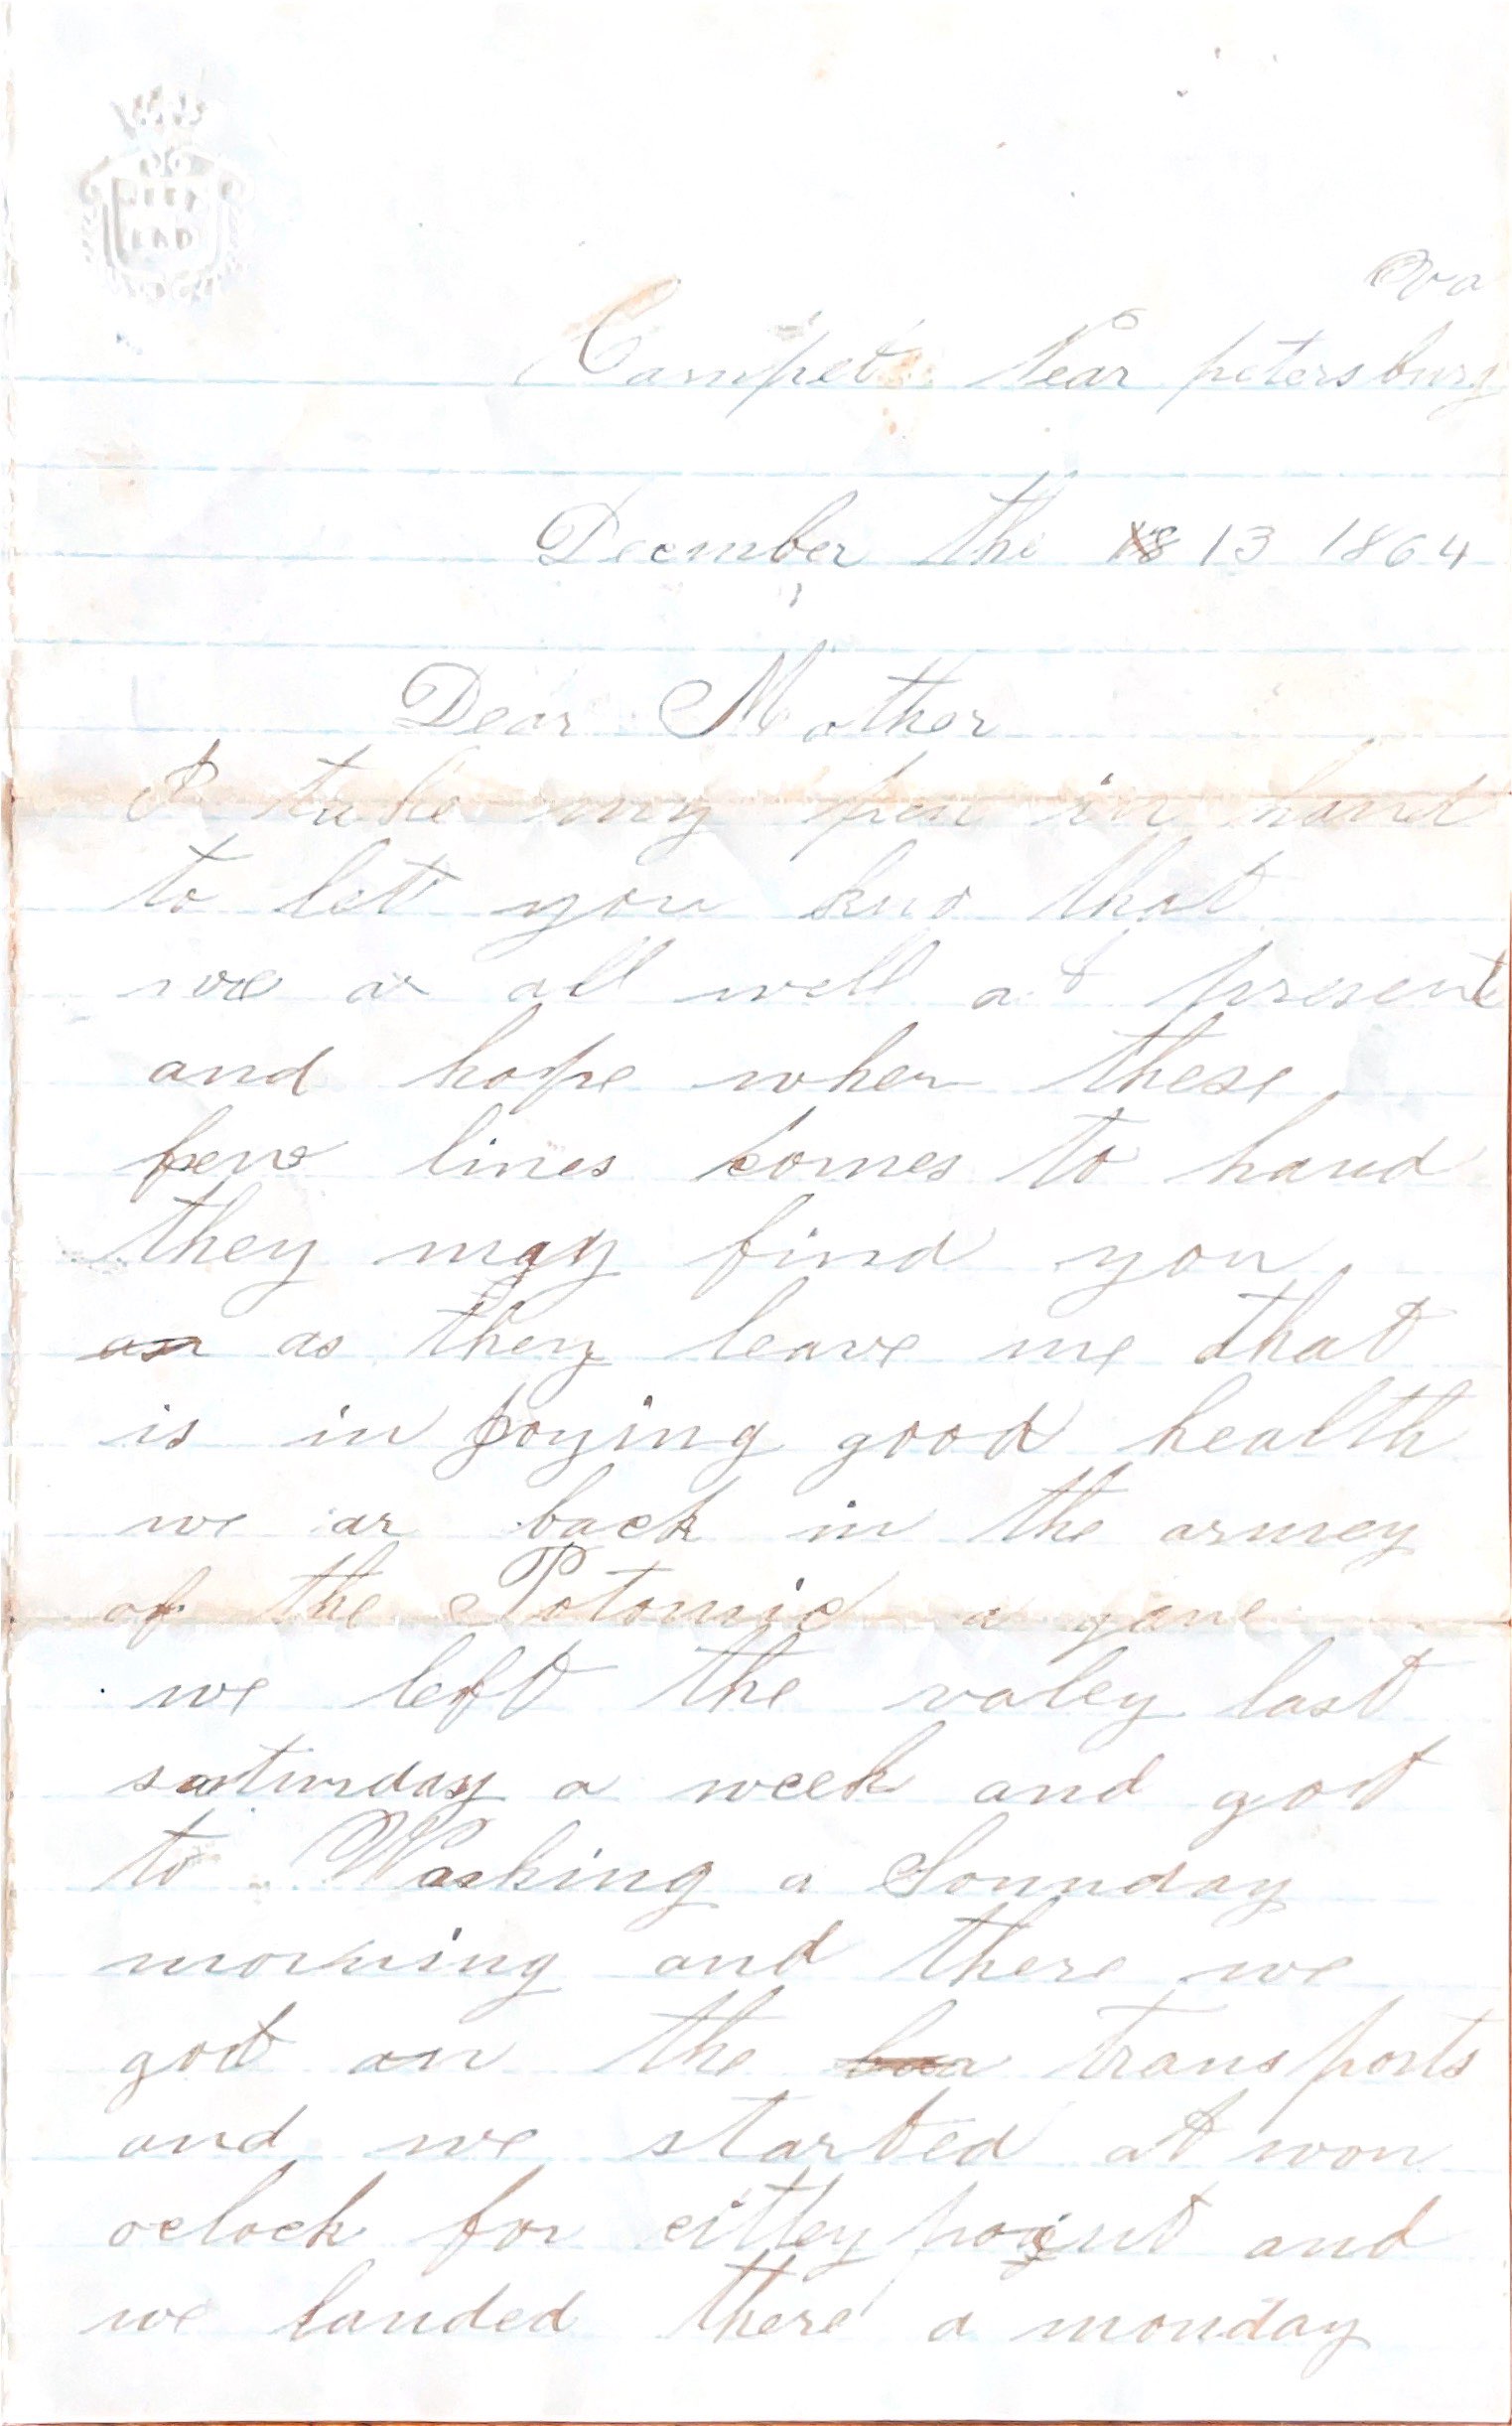 va
Campet Near petersburg
December the 18 13 1864
Dear Mother
I take my pen in hand
to let you kno that
we ar all well at present
and hope when these
few lines comes to hand
they may find you
as as they leave me that
is in joying good health
we ar back in the armey
of the Potomic a gane
we left the valey last
saturday a week and got
to Washing a Sonnday
morning and there we
got on the transports
and we started at won
oclock for cittey point and
we landed there a monday